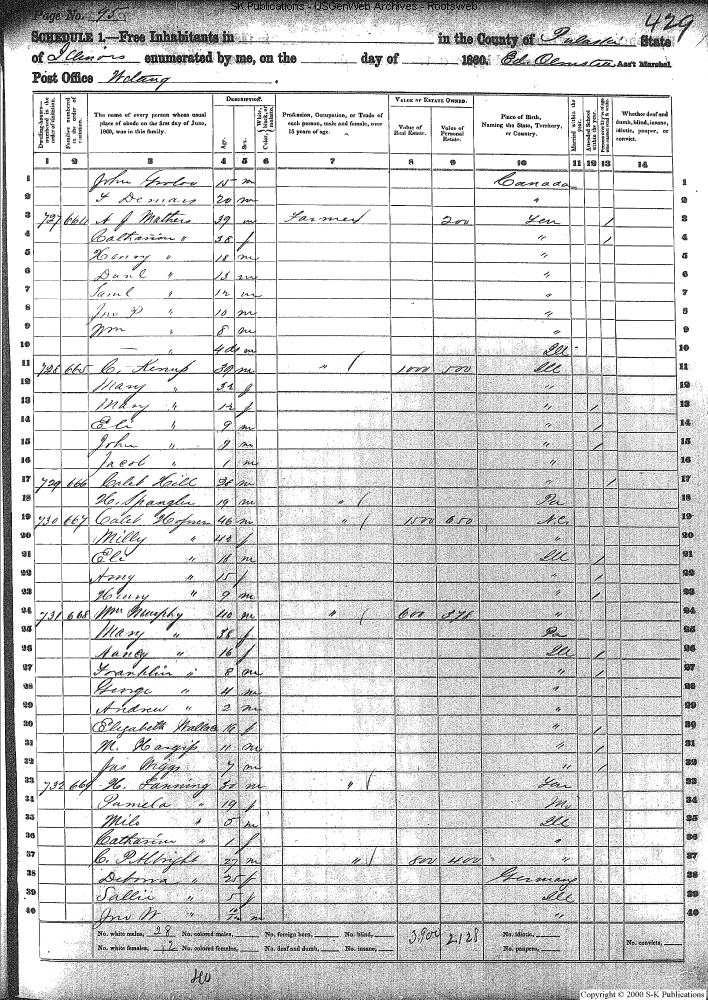 SK Publications - USGenWeb Archives - Rootsweb
Page No. 95
429
SCHEDULE 1.—Free Inhabitants in in the County of Pulaski State
of Illinois enumerated by me, on the day of 1860. Ed. Olmsted Ass't Marshal.
Post Office Wetaug
DESCRIPTION. VALUE OF ESTATE OWNED.
Dwelling-houses—numbered in the order of visitation. Families numbered in the order of visitation. The name of every person whose usual place of abode on the first day of June, 1860, was in this family. Age. Sex. Color, White, black, or mulatto. Profession, Occupation, or Trade of each person, male and female, over 15 years of age. Value of Real Estate. Value of Personal Estate. Place of Birth, Naming the State, Territory, or Country. Married within the year. Attended School within the year. Whether deaf and dumb, blind, insane, idiotic, pauper, or convict.
1 2 3 4 5 6 7 8 9 10 11 12 13 14
1 John 15 m Canada 1
2 F Demars 20 m " 2
3 727 664 A J Mathers 39 m Farmer 200 Ten / 3
4 Catharine " 38 f " / 4
5 Henry " 18 m " 5
6 Danl " 13 m " 6
7 Saml " 12 m " 7
8 Jno P " 10 m " 8
9 Wm " 8 m " 9
10 — " m Ill 10
11 728 665 C. 39 m " / 1000 500 Ill 11
12 Mary " 32 f " 12
13 Mary " 12 f " / 13
14 Eli " 9 m " / 14
15 John " 7 m " / 15
16 Jacob " 1 m " 16
17 729 666 Caleb Hill 28 m " / 17
18 H. Spangler 19 m " / Pa 18
19 730 667 Caleb 46 m " / 1500 650 N.C. 19
20 Milly " 42 f " 20
21 Eli " m Ill / 21
22 Amy " 15 f " / 22
23 Henry " 9 m " / 23
24 731 668 Wm Murphy 40 m " / 600 378 " 24
25 Mary " 38 f Pa 25
26 Nancy " 16 f Ill / 26
27 Franklin " 8 m " / 27
28 George " 4 m " 28
29 Andrew " 2 m " 29
30 Elizabeth Wallace f " / 30
31 M. 11 m " / 31
32 Jas 7 m " / 32
33 732 669 H. Lanning 30 m " / Ten 33
34 Pamela " 19 f Mo 34
35 Milo " 5 m Ill 35
36 Catharine " 1 f " 36
37 C. P. Albright 27 m " / 800 400 " 37
38 " 25 f Germany 38
39 Sallie " 5 f Ill 39
40 Jno W " m " 40
No. white males, 28 No. colored males, No. foreign born, No. blind, 3,900 2,128 No. idiotic,
No. white females, 12 No. colored females, No. deaf and dumb, No. insane, No. paupers, No. convicts,
40
Copyright © 2000 S-K Publications